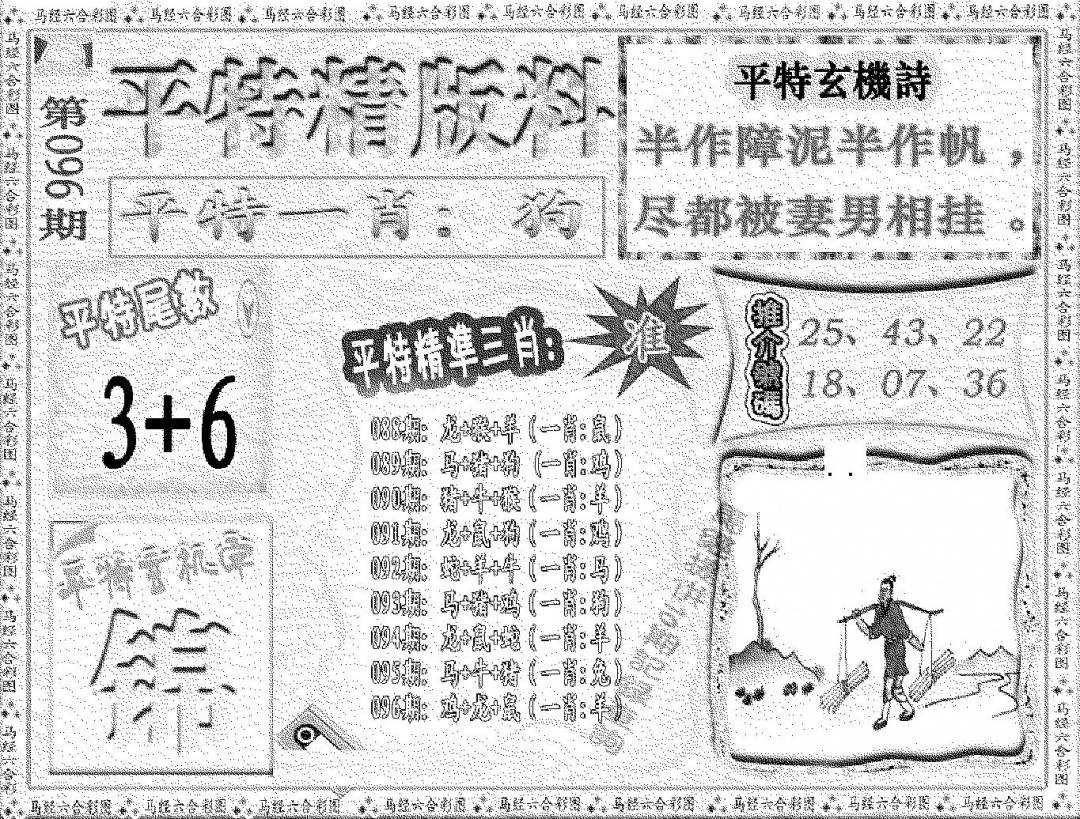 马经六合彩图 马经六合彩图 马经六合彩图 马经六合彩图 马经六合彩图 马经六合彩图 马经六合彩图 马经六合彩图 马经六合彩图
第096期
平特精版料
平特一肖: 狗
平特玄機詩
半作障泥半作帆，
尽都被妻男相挂。
平特尾数
3+6
平特精準三肖:
准
088期: 龙+猴+羊（一肖:鼠）
089期: 马+猪+狗（一肖:鸡）
090期: 猪+牛+猴（一肖:羊）
091期: 龙+鼠+狗（一肖:鸡）
092期: 蛇+羊+牛（一肖:马）
093期: 马+猪+鸡（一肖:狗）
094期: 龙+鼠+蛇（一肖:羊）
095期: 马+牛+猪（一肖:兔）
096期: 鸡+龙+鼠（一肖:羊）
推介號碼
25、43、22
18、07、36
平特玄机字
马经六合彩图 马经六合彩图 马经六合彩图 马经六合彩图 马经六合彩图 马经六合彩图 马经六合彩图 马经六合彩图 马经六合彩图